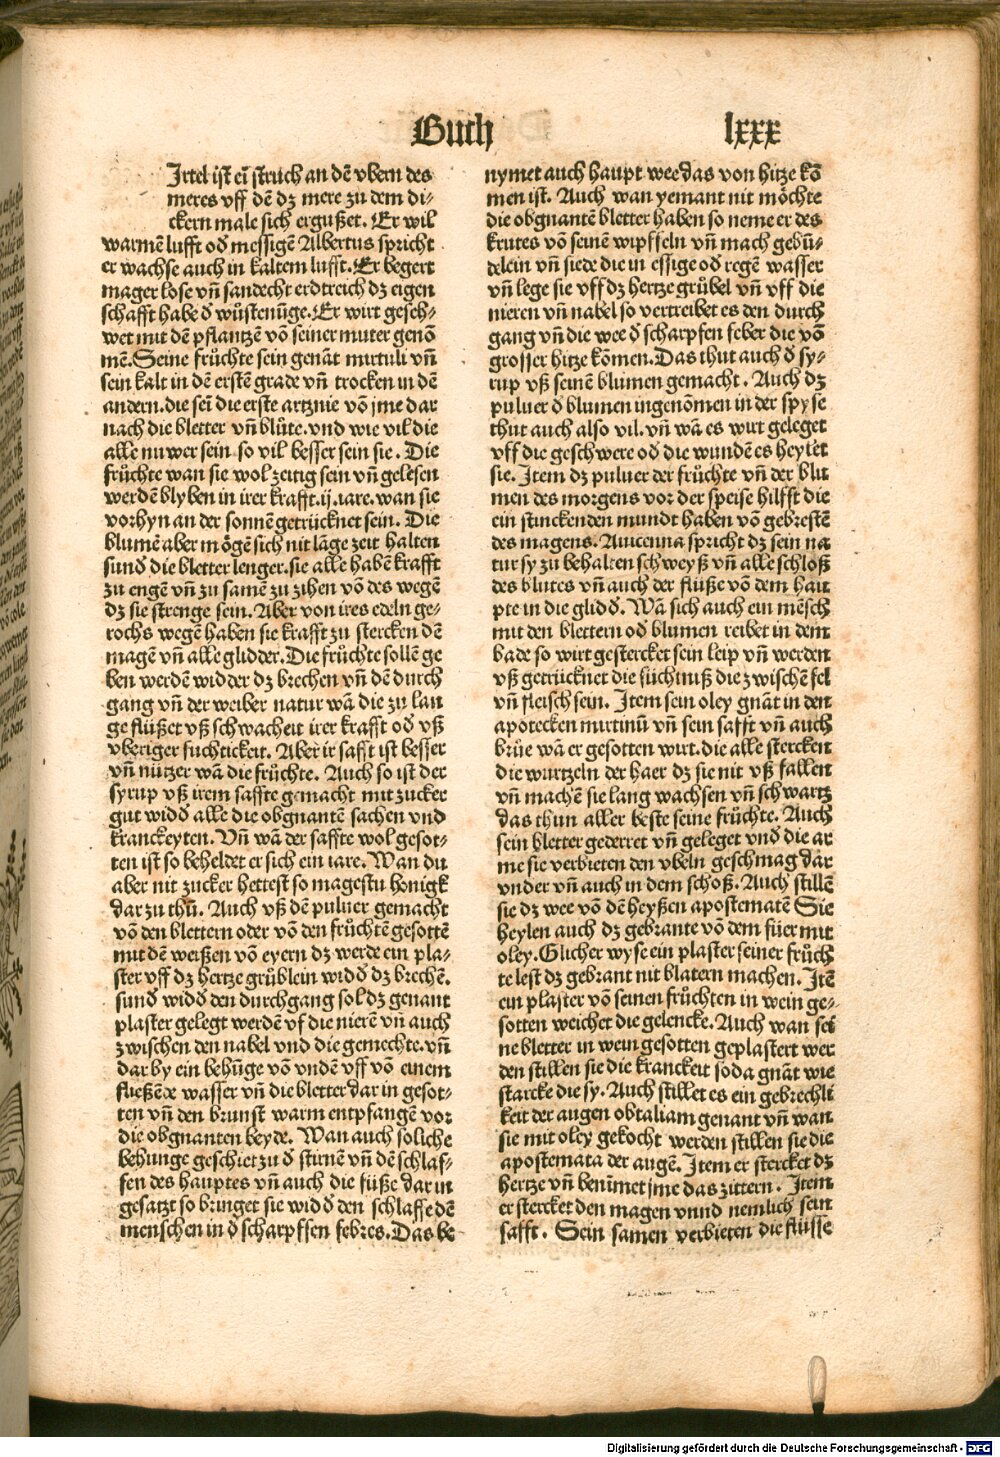 Buch lxxx
Jrtel ist eī struch an dē vbern des
meres vff dē dz mere zu dem di⸗
ckern male sich ergußet. Er wil
warmē lufft oď messigē Albertus spricht
er wachse auch in kaltem lufft. Er begert
mager lose vñ sandecht erdtreich dz eigen
schafft habe ď wüstenūge. Er wirt gesch⸗
wet mit dē pflantzē vō seiner muter genō
mē. Seine früchte sein genāt mirtuli vñ
sein kalt in dē erstē grade vñ trocken in dē
andern. die seī die erste artznie vō jme dar
nach die bletter vñ blüte. vnd wie vil die
alle nuwer sein so vil besser sein sie. Die
früchte wan sie wol zeitig sein vñ gelesen
werdē blyben in irer krafft. ij. iare. wan sie
vorhyn an der sonnē getrücknet sein. Die
blumē aber mögē sich nit lāge zeit halten
sunď die bletter lenger. sie alle habē krafft
zu engē vñ zu samē zu zihen vō des wegē
dz sie strenge sein. Aber von ires edeln ge⸗
rochs wegē haben sie krafft zu stercken dē
magē vñ alle glidder. Die früchte sollē ge
ben werdē widder dz brechen vñ dē durch
gang vñ der weiber natur wā die zu lan
ge flüßet vß schwacheit irer krafft oď vß
vberiger fuchtickeit. Aber ir safft ist besser
vñ nützer wā die früchte. Auch so ist der
syrup vß irem saffte gemacht mit zucker
gut widď alle die obgnantē sachen vnd
kranckeyten. Vñ wā der saffte wol gesot⸗
ten ist so beheldet er sich ein iare. Wan du
aber nit zucker hettest so magestu honigk
dar zu thū. Auch vß dē puluer gemacht
vō den blettern oder vō den früchtē gesottē
mit dē weißen vō eyern dz werde ein pla⸗
ster vff dz hertze grüblein widď dz brechē.
sunď widď den durchgang sol dz genant
plaster gelegt werdē vf die nierē vñ auch
zwischen den nabel vnd die gemechte. vñ
dar by ein behüge vō vndē vff vō einem
fließēde wasser vñ die bletter dar in gesot⸗
ten vñ den brunst warm entpfangē vor
die obgnanten beyde. Wan auch soliche
behunge geschiet zu ď stirnē vñ dē schlaf⸗
fen des hauptes vñ auch die füße dar in
gesatzt so bringet sie widď den schlaffe dē
menschen in ď scharpffen febres. Das be
nymet auch haupt wee das von hitze kō
men ist. Auch wan yemant nit möchte
die obgnantē bletter haben so neme er des
krutes vō seinē wipffeln vñ mach gebū⸗
delein vñ siede die in essige oď regē wasser
vñ lege sie vff dz hertze grübel vñ vff die
nieren vñ nabel so vertreibet es den durch
gang vñ die wee ď scharpfen feber die vō
grosser hitze kōmen. Das thut auch ď sy⸗
rup vß seinē blumen gemacht. Auch dz
puluer ď blumen ingenōmen in der spyse
thut auch also vil. vñ wā es wirt geleget
vff die geschwere oď die wundē es heylet
sie. Item dz puluer der früchte vñ der blu
men des morgens vor der speise hilfft die
ein stinckenden mundt haben vō gebrestē
des magens. Auicenna spricht dz sein na
tur sy zu behalten schweyß vñ alle schloß
des blutes vñ auch der flüße vō dem hau
pte in die glidď. Wā sich auch ein mēsch
mit den blettern oď blumen reibet in dem
bade so wirt gestercket sein leip vñ werden
vß getrücknet die füchtniß die zwischē fel
vñ fleisch sein. Jtem sein oley gnāt in den
apotecken mirtinū vñ sein safft vñ auch
brüe wā er gesotten wirt. die alle stercken
die wurtzeln der haer dz sie nit vß fallen
vñ machē sie lang wachsen vñ schwartz
das thun aller beste seine früchte. Auch
sein bletter gederret vñ geleget vnď die ar
me sie verbieten den vbeln geschmag dar
vnder vñ auch in dem schoß. Auch stillē
sie dz wee vō dē heyßen apostematē Sie
heylen auch dz gebrante vō dem füer mit
oley. Glicher wyse ein plaster seiner früch
te lest dz gebrant nit blatern machen. Itē
ein plaster vō seinen früchten in wein ge⸗
sotten weichet die gelencke. Auch wan sei
ne bletter in wein gesotten geplastert wer
den stillen sie die kranckeit soda gnāt wie
starcke die sy. Auch stillet es ein gebrechli
keit der augen obtaliam genant vñ wan
sie mit oley gekocht werden stillen sie die
apostemata der augē. Item er stercket dz
hertze vñ benīmet jme das zittern. Item
er stercket den magen vnnd nemlich sein
safft. Sein samen verbieten die flüsse
Digitalisierung gefördert durch die Deutsche Forschungsgemeinschaft - DFG